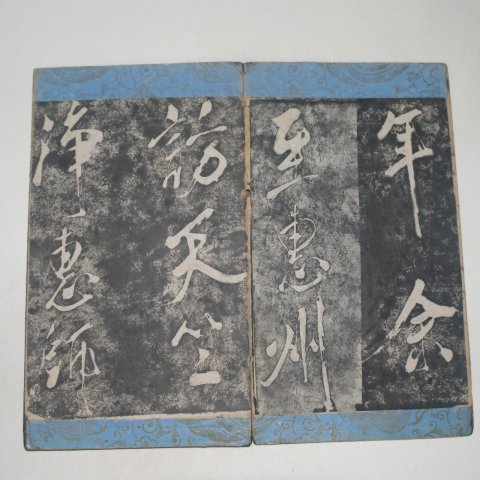 年余
至惠州
訪天竺
淨惠師